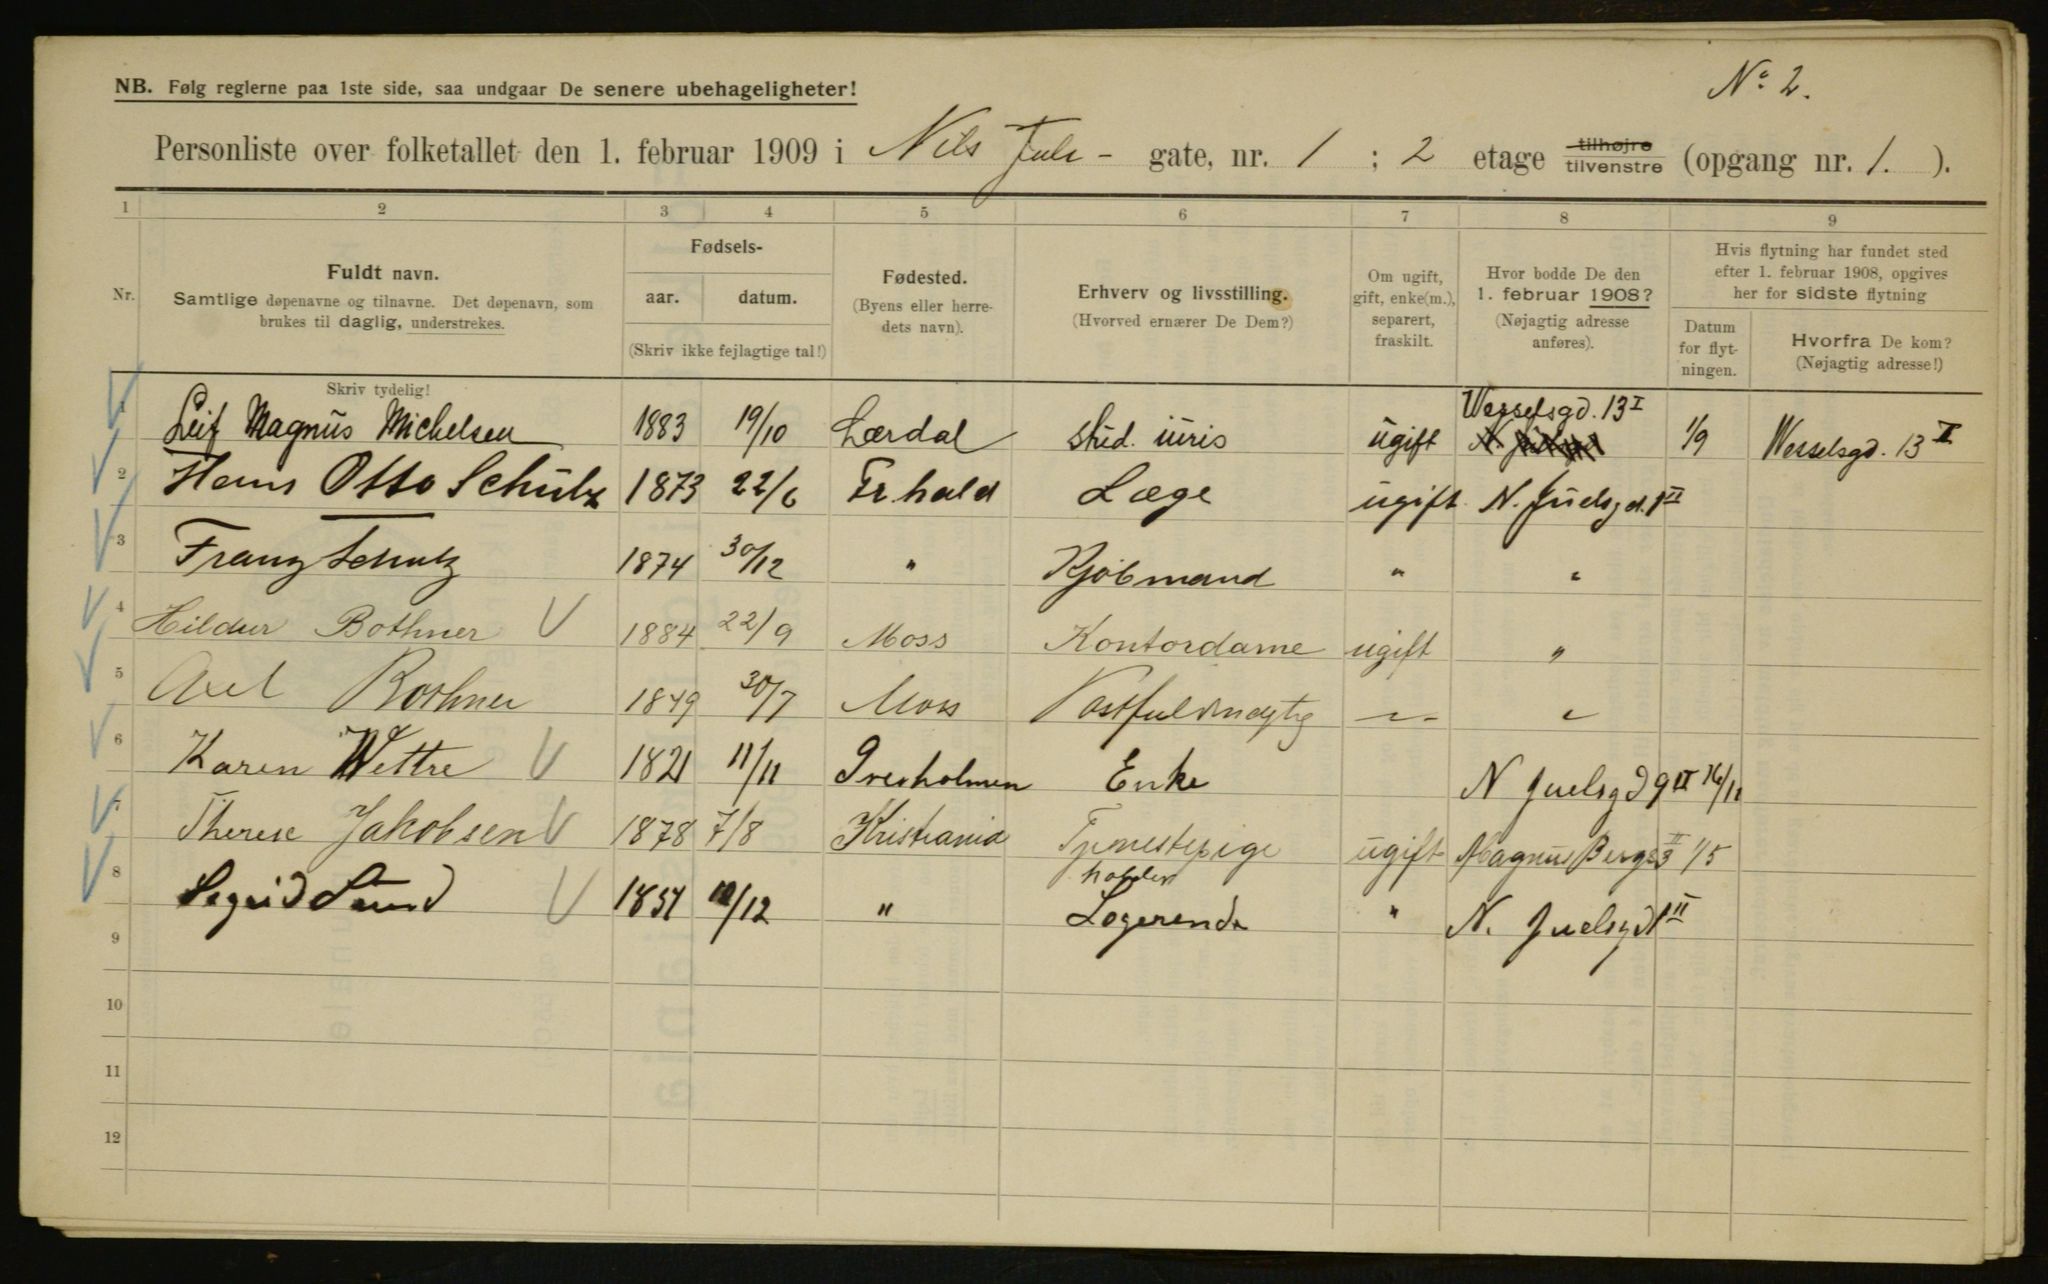 No 2.
NB. Følg reglerne paa 1ste side, saa undgaar De senere ubehageligheter!
Personliste over folketallet den 1. februar 1909 i Nils Juls - gate, nr. 1 ; 2 etage tilhøjre tilvenstre (opgang nr. 1. ).
1 2 3 4 5 6 7 8 9
Nr.
Fuldt navn.
Samtlige døpenavne og tilnavne. Det døpenavn, som
brukes til daglig, understrekes.
Skriv tydelig!
Fødsels-
aar. datum.
(Skriv ikke fejlagtige tal!)
Fødested.
(Byens eller herre-
dets navn).
Erhverv og livsstilling.
(Hvorved ernærer De Dem?)
Om ugift,
gift, enke(m.),
separert,
fraskilt.
Hvor bodde De den
1. februar 1908?
(Nøjagtig adresse
anføres).
Hvis flytning har fundet sted
efter 1. februar 1908, opgives
her for sidste flytning
Datum
for flyt-
ningen.
Hvorfra De kom?
(Nøjagtig adresse!)
1 Leif Magnus Michelsen 1883 19/10 Lærdal stud. iuris ugift Wesselsgd. 13 I 1/9 Wesselsgd. 13 I
2 Hans Otto Schulz 1873 22/6 Fr.hald Læge ugift N. Juelsgd. 1 II
3 Franz Schulz 1874 30/12 " Kjøbmand " "
4 Hildur Bothner 1884 22/9 Moss Kontordame ugift "
5 Axel Bothner 1849 30/7 Moss Postfuldmægtig -"- "
6 Karen Wettre 1821 11/11 Enke N Juelsgd 9 II 16/11
7 Therese Jakobsen 1878 7/8 Kristiania Tjenestepige ugift Magnus Bergs 3 II 1/5
8 Sigrid Sund 1851 /12 " holder Logerende " N. Juelsgd 1 II
9
10
11
12